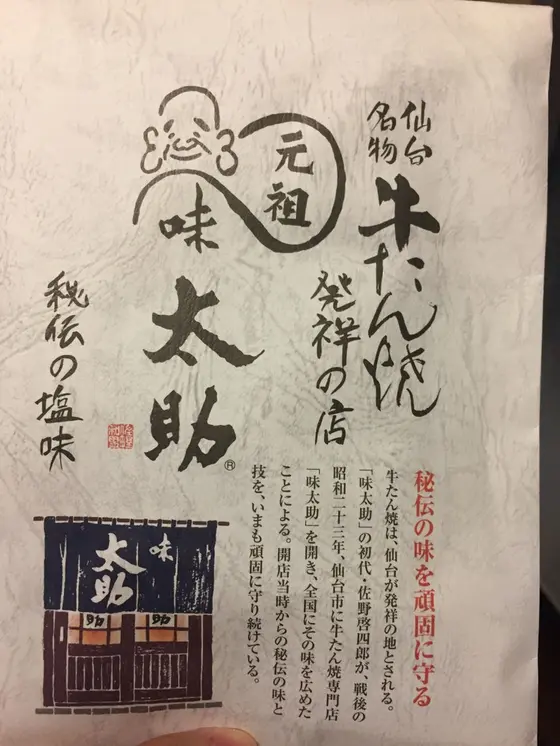 仙台
名物
牛たん焼
発祥の店
元祖
味
太助
®
秘伝の塩味
秘伝の味を頑固に守る
牛たん焼は、仙台が発祥の地とされる。
「味太助」の初代・佐野啓四郎が、戦後の
昭和二十三年、仙台市に牛たん焼専門店
「味太助」を開き、全国にその味を広めた
ことによる。開店当時からの秘伝の味と
技を、いまも頑固に守り続けている。
味
太助
助
助